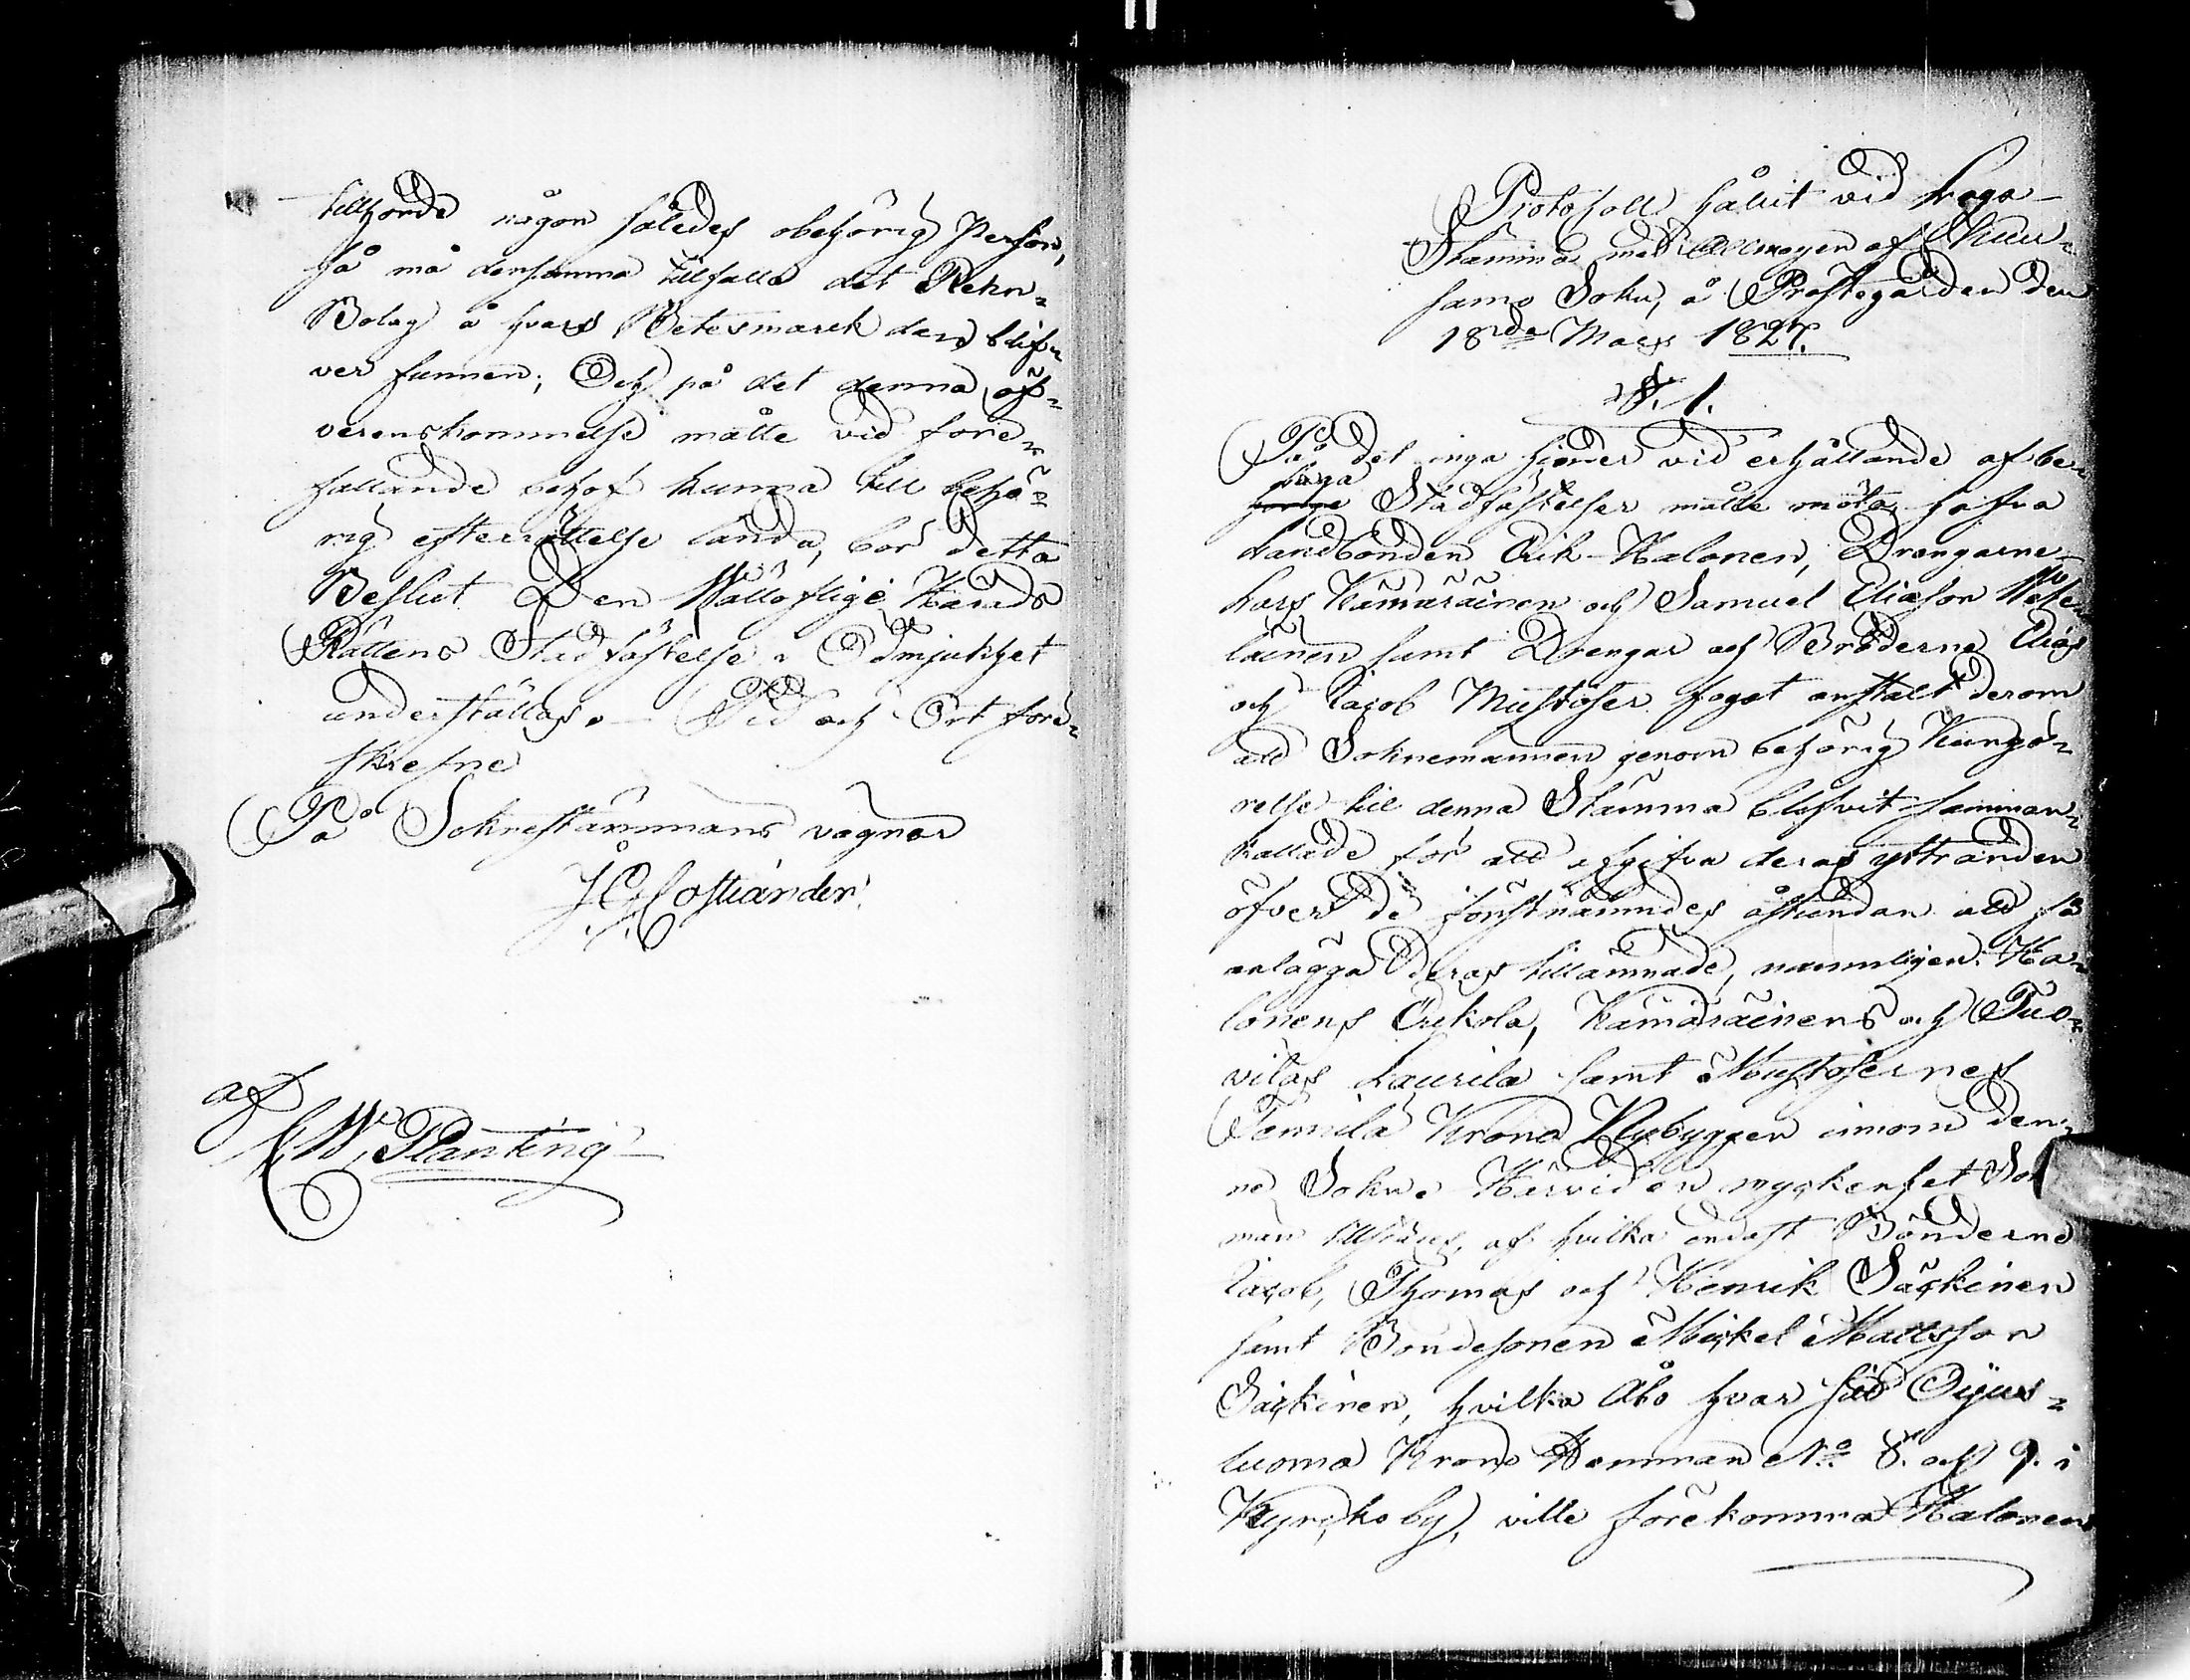 tillhörde någon således obehörig Person,
så må densamma tillfalla det Rehn-
Bolag å hvars Betesmarck den blif-
ver funnen; Och på det denna öf-
verenskommelse måtte vid före-
fallande behof kunna till behö-
rig efterrättelse lända, bör detta
Beslut Den Wälloflige Härads
Rättens Stadfästelse i Ödmjukhet
underställas. Tid och Ort före-
skrefne
På Soknestämmans vägnar
J. C. Costiander.
af
C. W. Planting
Protokoll hållit vid Laga
Stämma med Allmogen af Kuu-
samo Sokn, å Prostegården den
18de Mars 1827.
§. 1.
På det inga hinder vid erhållande af be-
laga
hörige Stadfästelser måtte möta, hafva
Landbonden Erik Halonen, Drengarne
Lars Kämäräinen och Samuel Eliasson
läinen samt Drengar och Bröderne Elias
och Jacob Mustoser fogat anstalt derom
att Soknemännen genom behörig Kungö-
relse till denna Stämma blifvit samman-
kallade för att afgifva deras yttranden
öfver de förstnämndes åstundan att få
anlägga deras tillämnade, nämnligen: Ha-
lonens Erkola, Kämäräinens och Tuo-
vilas Laurila samt Mustosernes
Krono Nybyggen innom den-
ne Sokn. Härvid en myckenhet Sok
man af hvilka endast Bönderne
Jacob, Thomas och Henrik Säckinen
samt Bondesonen Mickel Mattsson
Säckinen, hvilka Åbo hvar sitt Oijus-
luoma Krono Hemman No. 8. och 9. i
Kyrckoby, ville förekomma Halonens